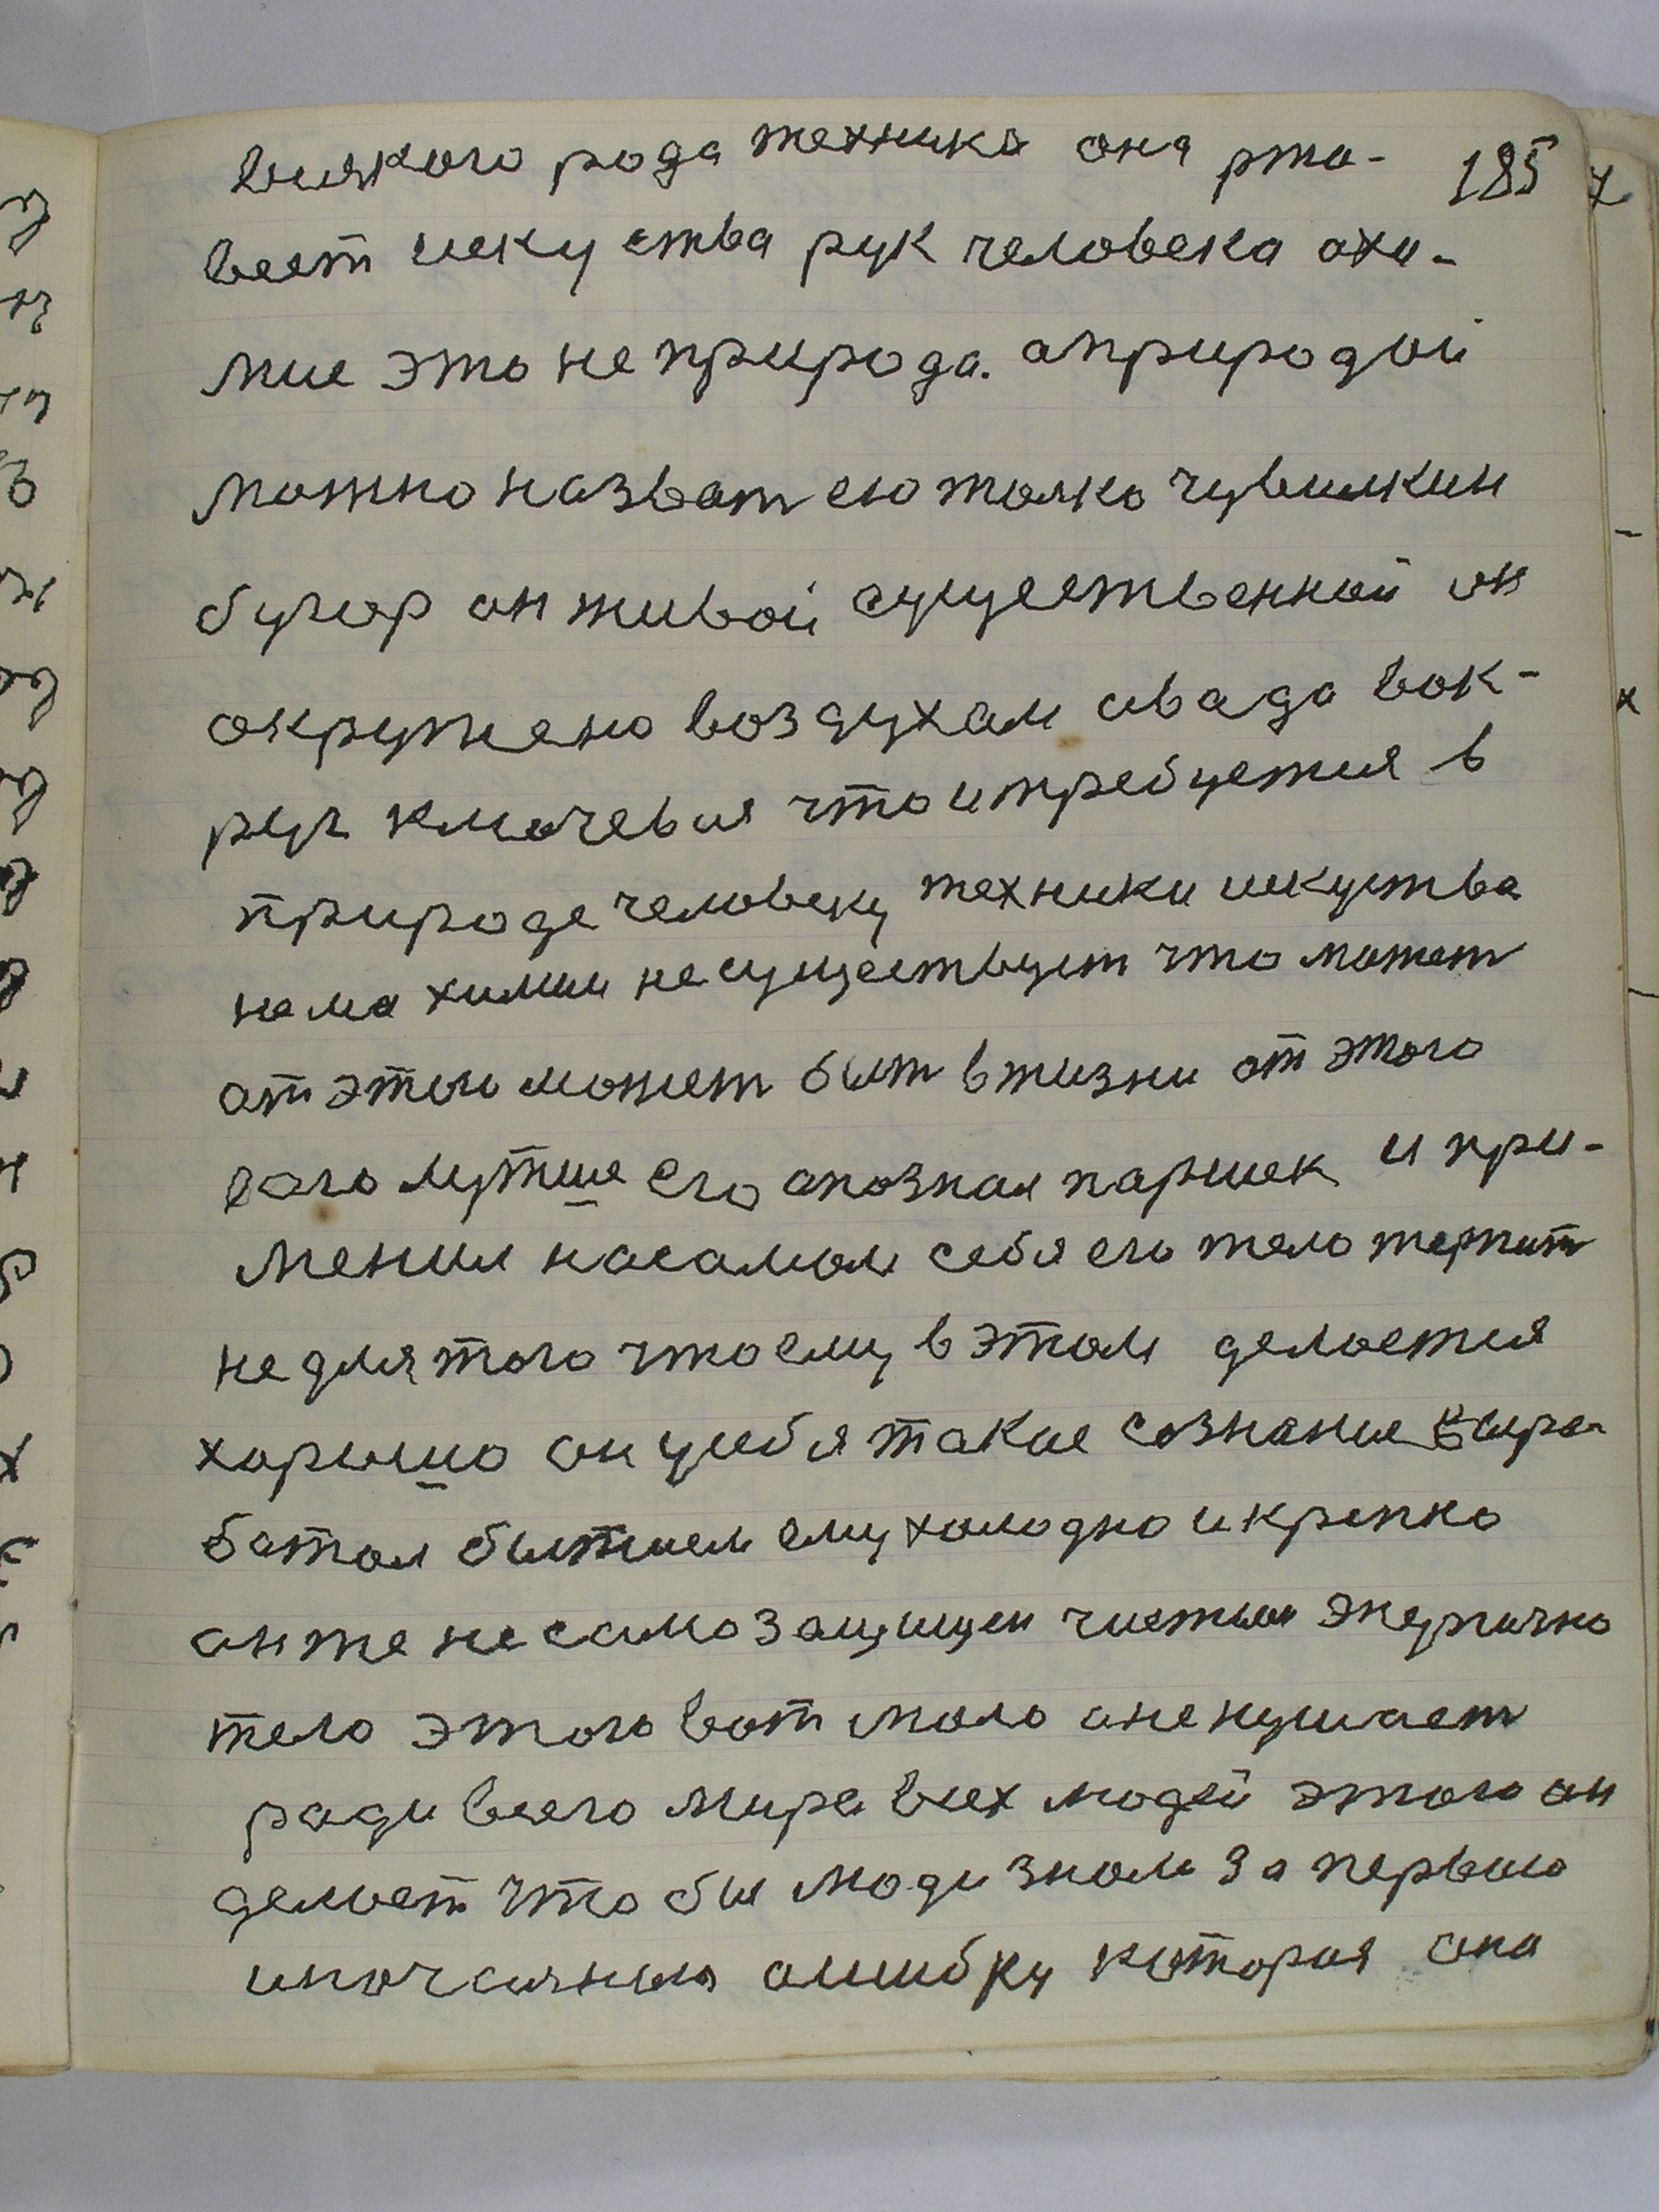 всякого рода техника она рта- 185
веет искуства рук человека ахи-
мие это не природа. априродой
можно назват ею толко чувилкин
бугор он живой существенной он
окружено воздухам авада вок-
руг ключевая что и требуется в
природе человеку техники искуства
нема химии не существует что может
от этого может быт в жизни от этого
его лутше его опознал паршек и при-
менил насамом себя его тело терпит
не для того что ему в этом делается
хорошо он усебя такие сознание выра-
ботал бытием ему холодно и крепко
он же не самозащищен чистым энергично
тело этого вот мало он не кушает
ради всего мира всех людей этого он
делает что бы люди знали за первыю
ошибку которая она